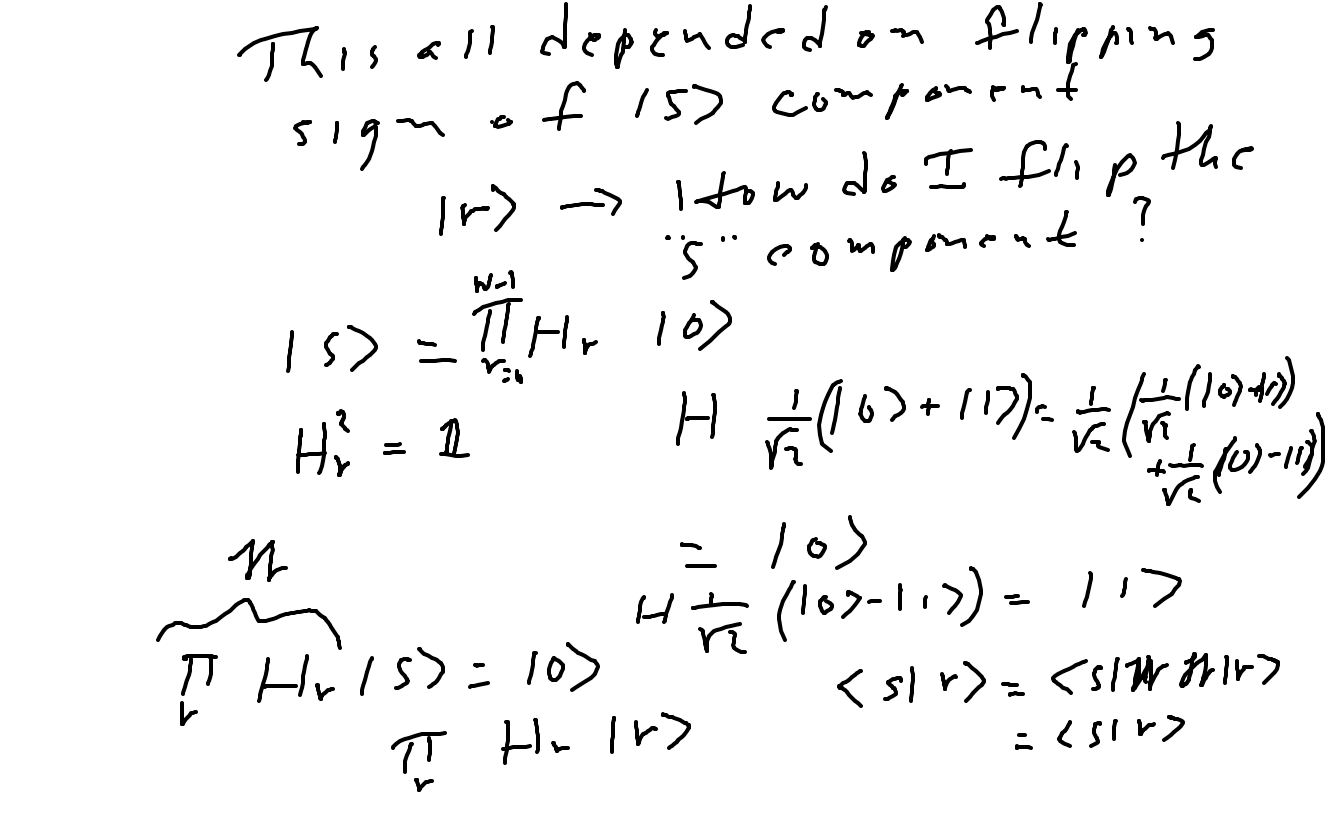 This all depended on flipping
sign of |s> component
|r> → How do I flip the
"s" component ?
|s> = ∏_{r=0}^{N-1} H_r |0>
H 1/√2 (|0> + |1>) = 1/√2 (1/√2 (|0>+|1>)
+ 1/√2 (|0>-|1>))
H_r^2 = 𝟙
= |0>
H 1/√2 (|0>-|1>) = |1>
ℋ
∏_r H_r |s> = |0>
<s|r> = <s|ℋ ℋ|r>
∏_r H_r |r>
= <s|r>